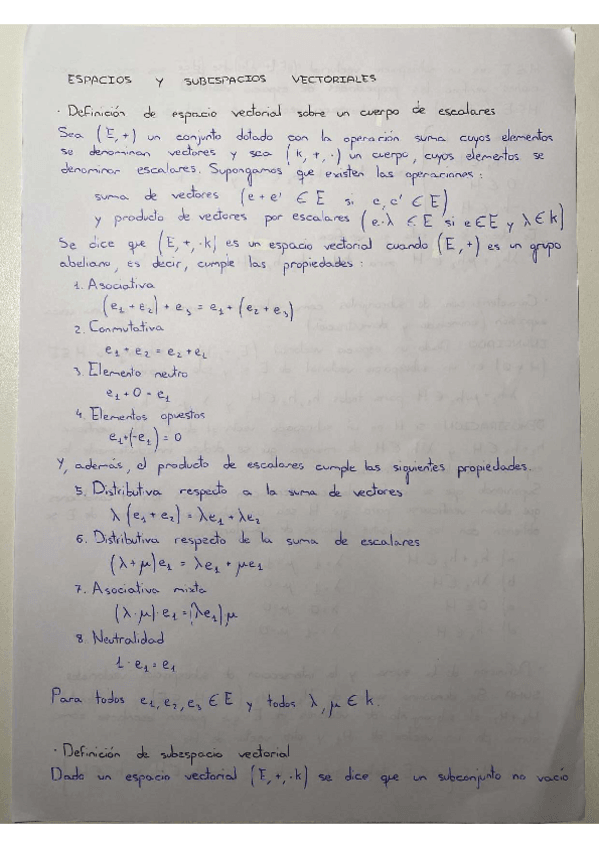 ESPACIOS Y SUBESPACIOS VECTORIALES
· Definición de espacio vectorial sobre un cuerpo de escalares
Sea (E,+) un conjunto dotado con la operación suma cuyos elementos
se denominan vectores y sea (k,+,·) un cuerpo, cuyos elementos se
denominan escalares. Supongamos que existen las operaciones:
suma de vectores (e+e' ∈ E si e,e' ∈ E)
y producto de vectores por escalares (e·λ ∈ E si e∈E y λ∈k)
Se dice que (E,+,·k) es un espacio vectorial cuando (E,+) es un grupo
abeliano, es decir, cumple las propiedades:
1. Asociativa
(e₁+e₂)+e₃ = e₁+(e₂+e₃)
2. Conmutativa
e₁+e₂ = e₂+e₁
3. Elemento neutro
e₁+0 = e₁
4. Elementos opuestos
e₁+(-e₁) = 0
Y, además, el producto de escalares cumple las siguientes propiedades.
5. Distributiva respecto a la suma de vectores
λ(e₁+e₂) = λe₁+λe₂
6. Distributiva respecto de la suma de escalares
(λ+μ)e₁ = λe₁+μe₁
7. Asociativa mixta
(λ·μ)·e₁ = (λe₁)μ
8 Neutralidad
1·e₁ = e₁
Para todos e₁,e₂,e₃ ∈ E y todos λ,μ ∈ k.
· Definición de subespacio vectorial
Dado un espacio vectorial (E,+,·k) se dice que un subconjunto no vacío